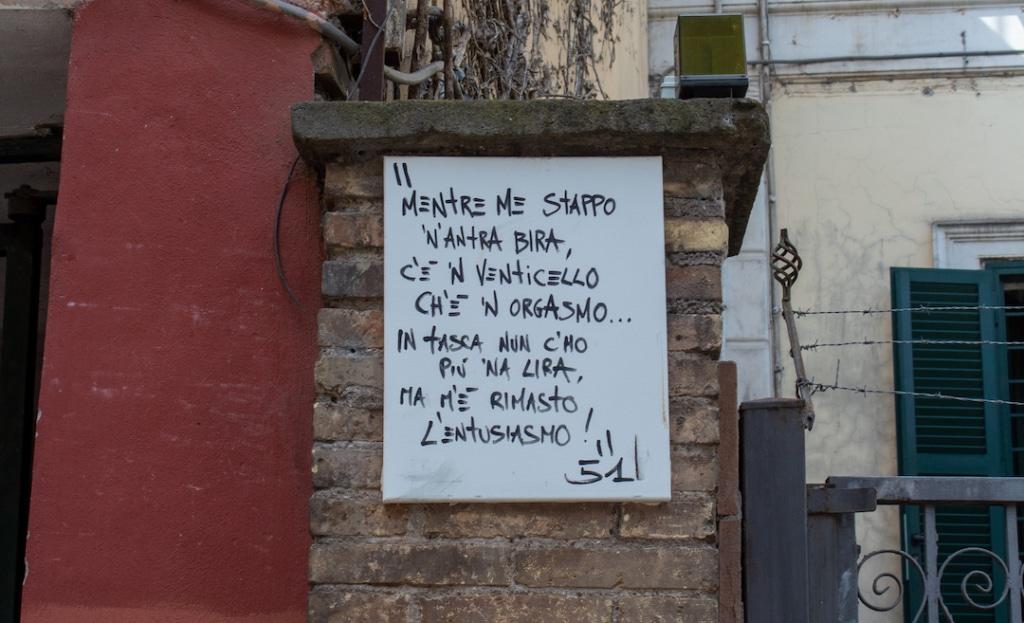 "MENTRE ME STAPPO
'N'ANTRA BIRA,
C'È 'N VENTICELLO
CH'È 'N ORGASMO...
IN TASCA NUN C'HO
PIÚ 'NA LIRA,
MA M'È RIMASTO
L'ENTUSIASMO!"
51